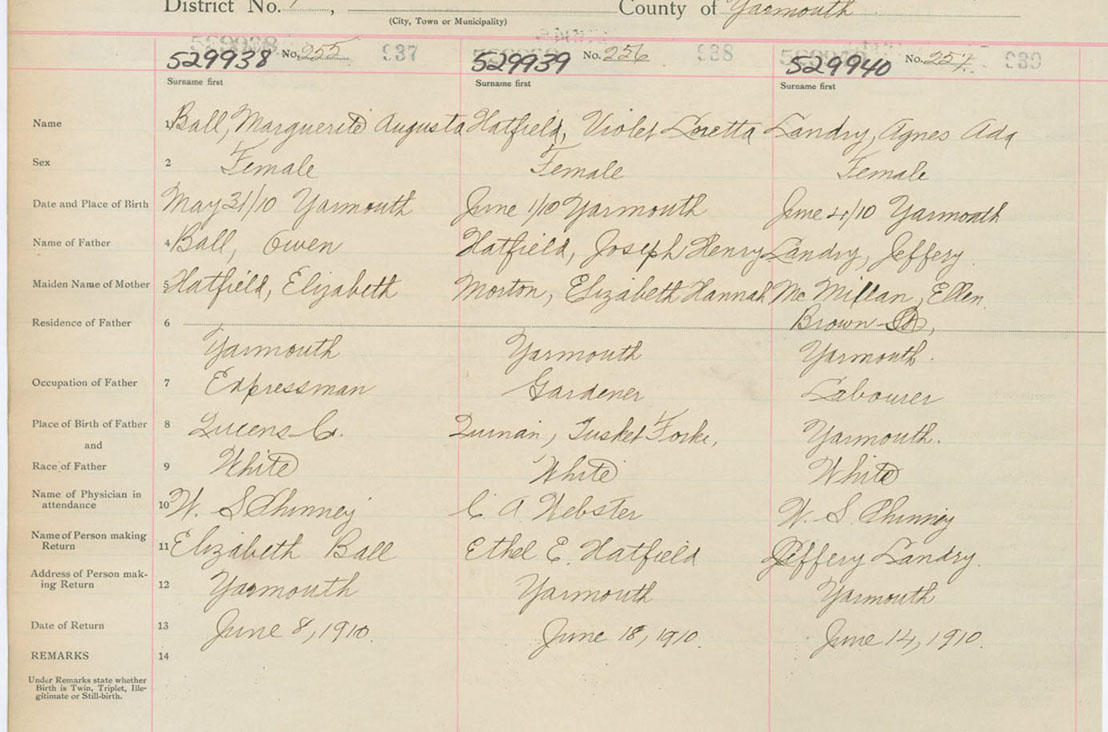 District No.
(City, Town or Municipality)
County of Yarmouth
529938 No. 255 937
529939 No. 256 938
529940 No. 257 939
Surname first Surname first Surname first
Name 1 Ball, Marguerite Augusta Hatfield, Violet Loretta Landry, Agnes Ada
Sex 2 Female Female Female
Date and Place of Birth May 31/10 Yarmouth June 1/10 Yarmouth June 4/10 Yarmouth
Name of Father 4 Ball, Owen Hatfield, Joseph Henry Landry, Jeffery
Maiden Name of Mother 5 Hatfield, Elizabeth Morton, Elizabeth Hannah McMillan, Ellen
Residence of Father 6 Brown St,
Yarmouth Yarmouth Yarmouth.
Occupation of Father 7 Expressman Gardener Labourer
Place of Birth of Father 8 Queens Co. Quinan, Tusket Forks, Yarmouth.
and
Race of Father 9 White White White
Name of Physician in
attendance 10 W. S. Phinney C. A. Webster W. S. Phinney
Name of Person making
Return 11 Elizabeth Ball Ethel E. Hatfield Jeffery Landry.
Address of Person mak-
ing Return 12 Yarmouth Yarmouth Yarmouth
Date of Return 13 June 8, 1910. June 18, 1910. June 14, 1910.
REMARKS 14
Under Remarks state whether
Birth is Twin, Triplet, Ille-
gitimate or Still-birth.